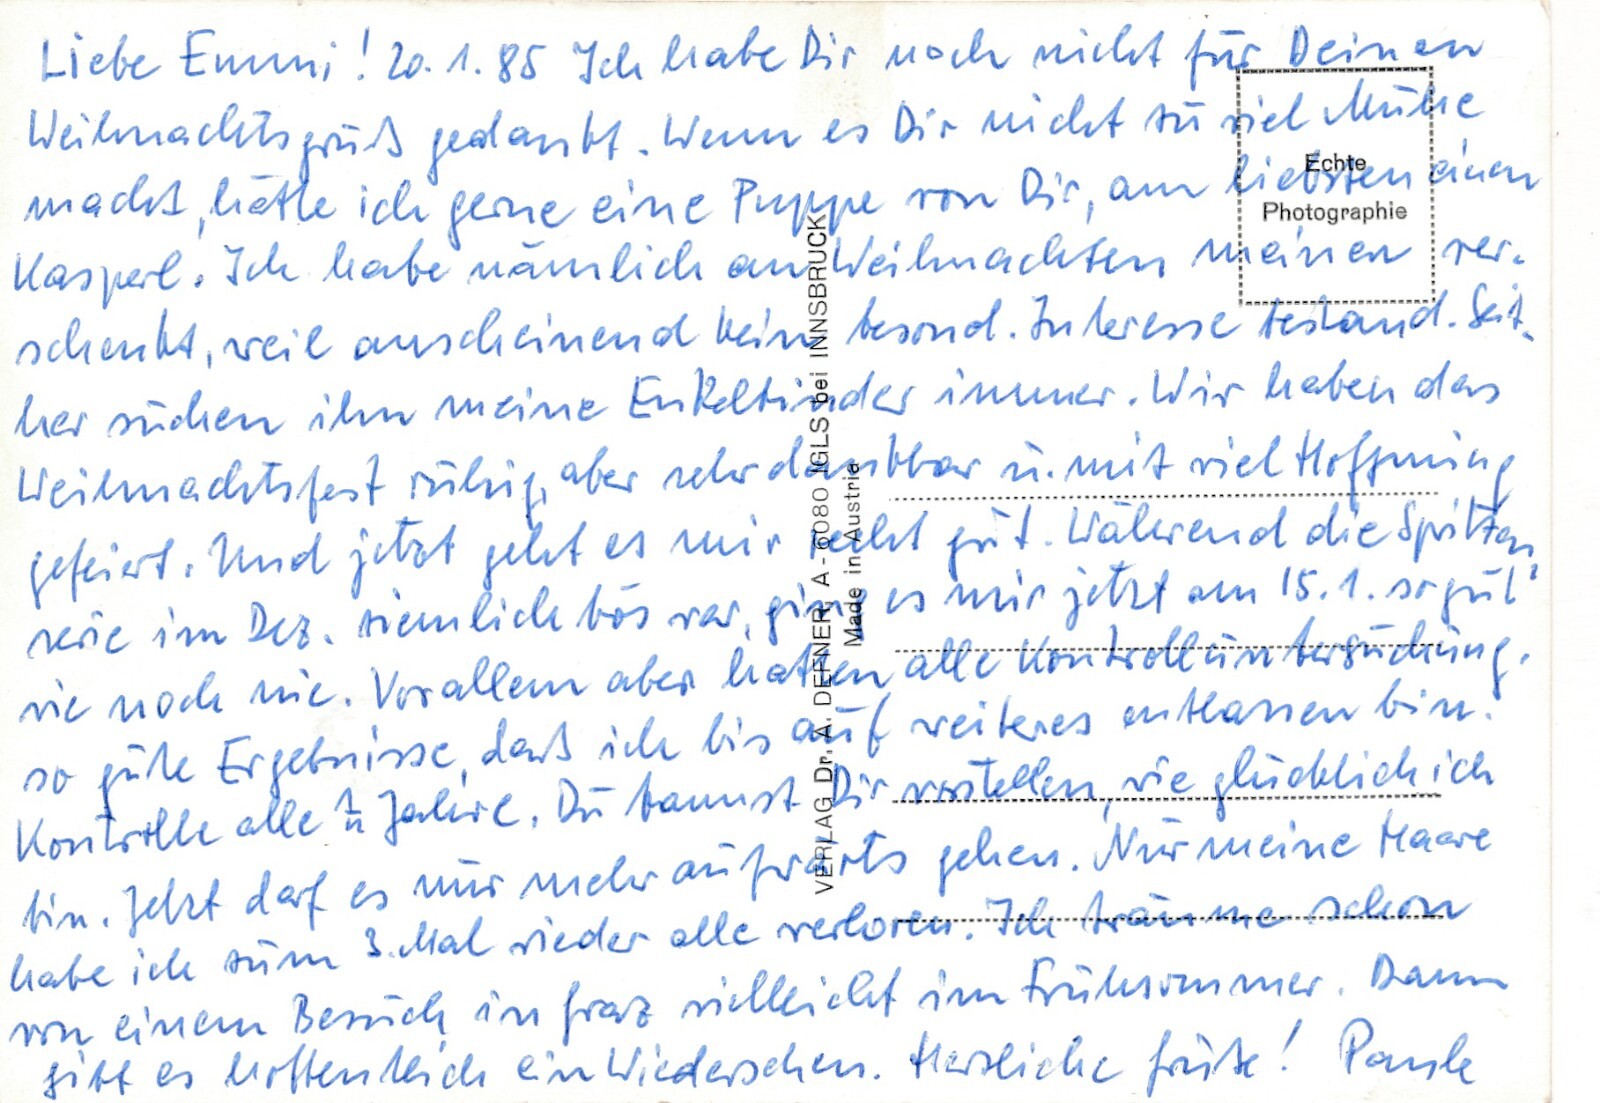 Liebe Emmi! 20.1.85 Ich habe Dir noch nicht für Deinen
Weihnachtsgruß gedankt. Wenn es Dir nicht zu viel Mühe
macht, hätte ich gerne eine Puppe von Dir, am liebsten einen
Kasperl. Ich habe nämlich an Weihnachten meinen ver-
schenkt, weil anscheinend kein besond. Interesse bestand. Seit-
her suchen ihn meine Enkelkinder immer. Wir haben das
Weihnachtsfest ruhig, aber sehr dankbar u. mit viel Hoffnung
gefeiert. Und jetzt geht es mir recht gut. Während die Spritzen
serie im Dez. ziemlich bös war, ging es mir jetzt am 15.1. so gut
wie noch nie. Vor allem aber hatten alle Kontrolluntersuchung.
so gute Ergebnisse, daß ich bis auf weiteres entlassen bin.
Kontrolle alle ½ Jahre. Du kannst Dir vorstellen, wie glücklich ich
bin. Jetzt darf es nur mehr aufwärts gehen. Nur meine Haare
habe ich zum 3. Mal wieder alle verloren. Ich träume schon
von einem Besuch in Graz vielleicht im Frühsommer. Dann
gibt es hoffentlich ein Wiedersehen. Herzliche Grüße!
Echte
Photographie
VERLAG Dr. A. DEFNER, A-6080 IGLS bei INNSBRUCK
Made in Austria